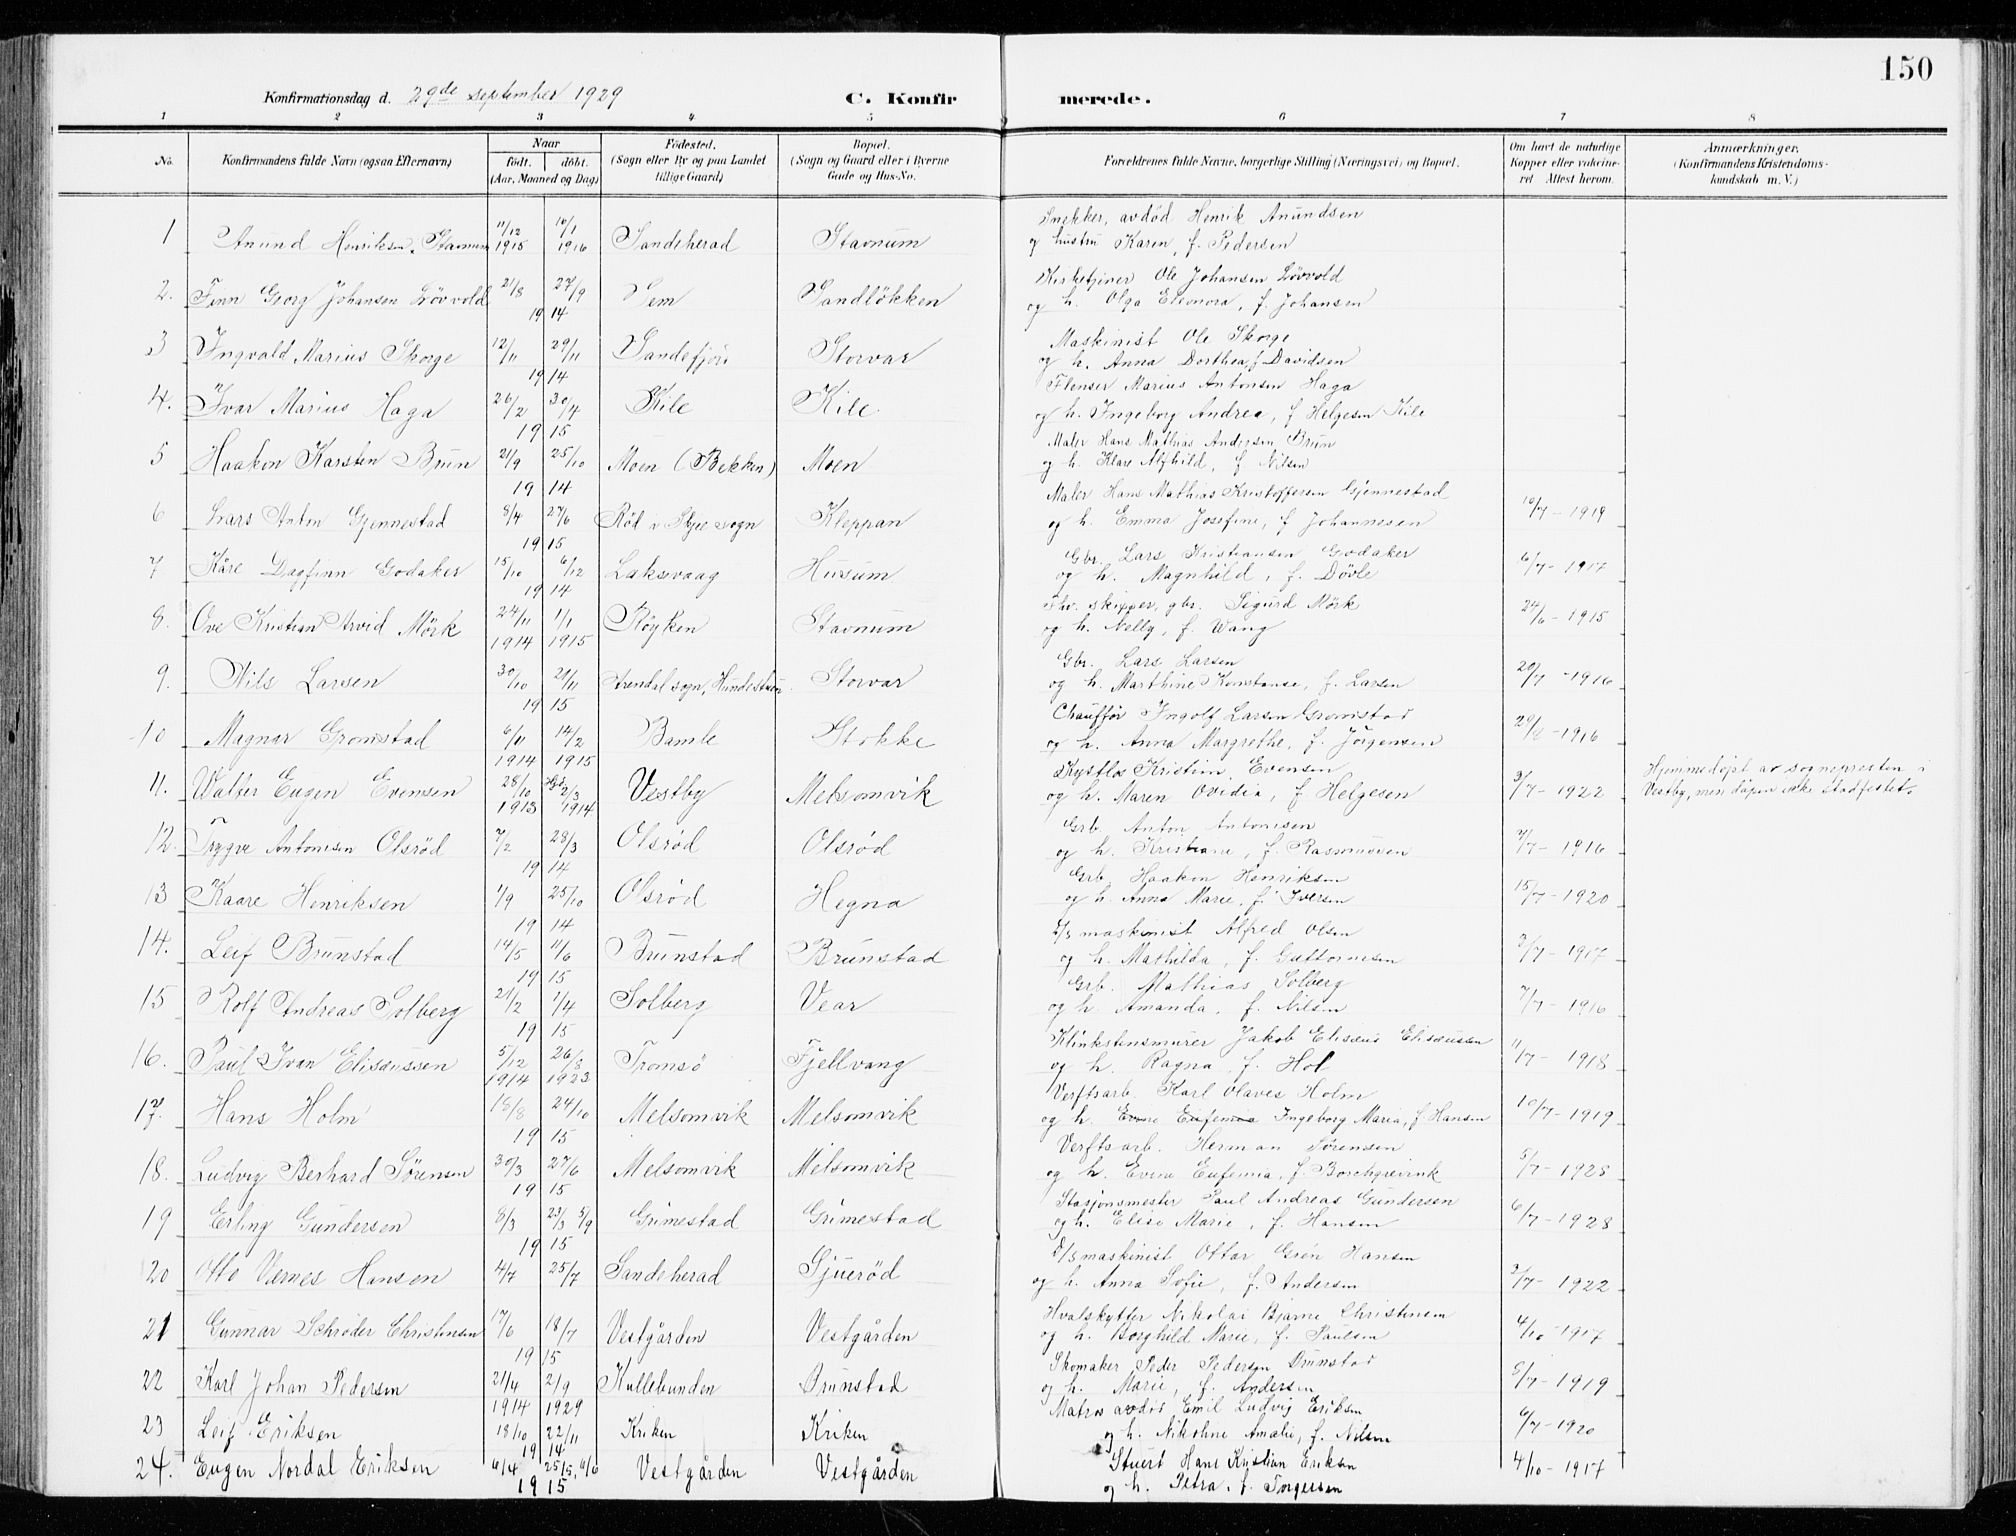 150
Konfirmationsdag d. 29de september 1929
C. Konfirmerede.
1 2 3 4 5 6 7 8
No.
Konfirmandens fulde Navn (ogsaa Efternavn)
Naar
født. døbt.
(Aar, Maaned og Dag)
Fødested. (Sogn eller By og paa Landet tillige Gaard)
Bopæl. (Sogn og Gaard eller i Byerne Gade og Hus-No.
Forældrenes fulde Navne, borgerlige Stilling (Næringsvei) og Bopæl.
Om havt de naturlige Kopper eller vaccineret. Attest herom.
Anmærkninger. (Konfirmandens Kristendomskundskab m. V.)
1 Anund Henriksen Stavnum 11/12 1915 16/1 1916 Sandeherad Stavnum Snekker, avdød Henrik Anundsen
og hustru Karen, f. Pedersen
2. Finn Georg Johansen Lövvold 21/8 27/9 1914 Sem Sandlökken Kirketjener Ole Johansen Lövvold
og h. Olga Eleonora, f. Johansen
3 Ingvald Marius Skorge 12/11 29/11 1914 Sandefjord Storvar Maskinist Ole Skorge
og h. Anna Dorthea, f. Davidsen
4. Ivar Marius Haga 26/2 30/4 1915 Kile Kile Flenser Marius Antonsen Haga
og h. Ingeborg Andrea, f. Helgesen Kile
5 Haakon Karsten Brun 21/9 25/10 1914 Moen (Bekken) Moen Maler Hans Mathias Andersen Brun
og h. Klara Alfhild, f. Nilsen
6 Lars Anton Gjennestad 8/4 27/6 1915 Rød i Skjee sogn Kleppan Maler Hans Mathias Kristoffersen Gjennestad
og h. Emma Josefine, f. Johannesen 10/7 - 1919
7 Kåre Dagfinn Godaker 15/10 6/12 1914 Laksevaag Husum Gbr. Lars Kristiansen Godaker
og h. Magnhild, f. Dövle 6/7 - 1917
8. Ove Kristian Arvid Mörk 24/11 1914 1/1 1915 Röyken Stavnum Fhv. skipper, gbr. Sigurd Mörk
og h. Nelly, f. Wang 24/6 - 1915
9. Nils Larsen 30/10 21/11 1915 Arendal sogn, Storvar Gbr. Lars Larsen
og h. Marthine Konstanse, f. Larsen 20/7 - 1916
10 Magnar Gromstad 6/11 1914 14/2 1915 Bamle Stokke Chauffør Ingolf Larsen Gromstad
og h. Anna Margrethe, f. Jörgensen 29/8 - 1916
11. Walter Eugen Evensen 28/10 1913 Hjd. 2/3 1914 Vestby Melsomvik Kristian Evensen
og h. Maren Ovidia, f. Helgesen 3/7 - 1922 Hjemmedøpt av sognepresten i
Vestby, men dåpen ikke stadfestet.
12. Trygve Antonisen Olsrød 7/2 28/3 1914 Olsrød Olsrød Grb. Anton Antonisen
og h. Kristiane, f. Rasmussen 7/7 - 1916
13 Kaare Henriksen 1/9 25/10 1914 Olsrød Hegna Grb. Haakon Henriksen
og h. Anna Marie, f. Iversen 15/7 - 1920
14. Leif Brunstad 14/5 11/6 1915 Brunstad Brunstad D/s maskinist Alfred Olsen
og h. Mathilda, f. Guttormsen 3/7 - 1917
15 Rolf Andreas Solberg 21/2 1/4 1915 Solberg Vear Grb. Mathias Solberg
og h. Amanda, f. Nilsen 7/7 - 1916
16. Paul Ivan Elisæussen 5/12 1914 26/8 1923 Tromsö Fjellvang Klinkstensmurer Jakob Elisæus Elisæussen
og h. Ragna, f. Hol 11/7 - 1918
17. Hans Holm 18/8 24/10 1915 Melsomvik Melsomvik Verftsarb. Karl Olaves Holm
og h. Evine Eufemia Ingeborg Maria, f. Hansen 10/7 - 1919
18. Ludvig Berhard Sörensen 30/3 27/6 1915 Melsomvik Melsomvik Verftsarb. Herman Sørensen
og h. Evine Eufemia, f. Borchgrevink 5/7 - 1928
19 Erling Gundersen 8/3 23/3 5/9 1915 Grimestad Grimestad Stasjonsmester Paul Andreas Gundersen
og h. Elise Marie, f. Hansen 6/7 - 1928
20 Otto Værnes Hansen 4/7 25/7 Sandeherad Gjuerød D/s maskinist Ottar Grön Hansen
og h. Anna Sofie, f. Andersen 3/7 - 1922
21 Gunnar Schrøder Christensen 17/6 18/7 1915 Vestgården Vestgården Hvalskytter Nikolai Bjarne Christensen
og h. Borghild Marie, f. Paulsen 4/10 - 1917
22 Karl Johan Pedersen 21/4 1914 2/9 1929 Hullebunden Brunstad Skomaker Peder Pedersen Brunstad
og h. Marie, f. Andersen 5/7 - 1919
23 Leif Eriksen 18/10 22/11 1914 Kriken Kriken Matros avdöd Emil Ludvig Eriksen
og h. Nikoline Amalie, f. Nilsen 6/7 - 1920
24. Eugen Nordal Eriksen 6/4 25/5, 6/6 1915 Vestgården Vestgården Stuert Hans Kristian Eriksen
og h. Petra, f. Torgersen 4/10 - 1917